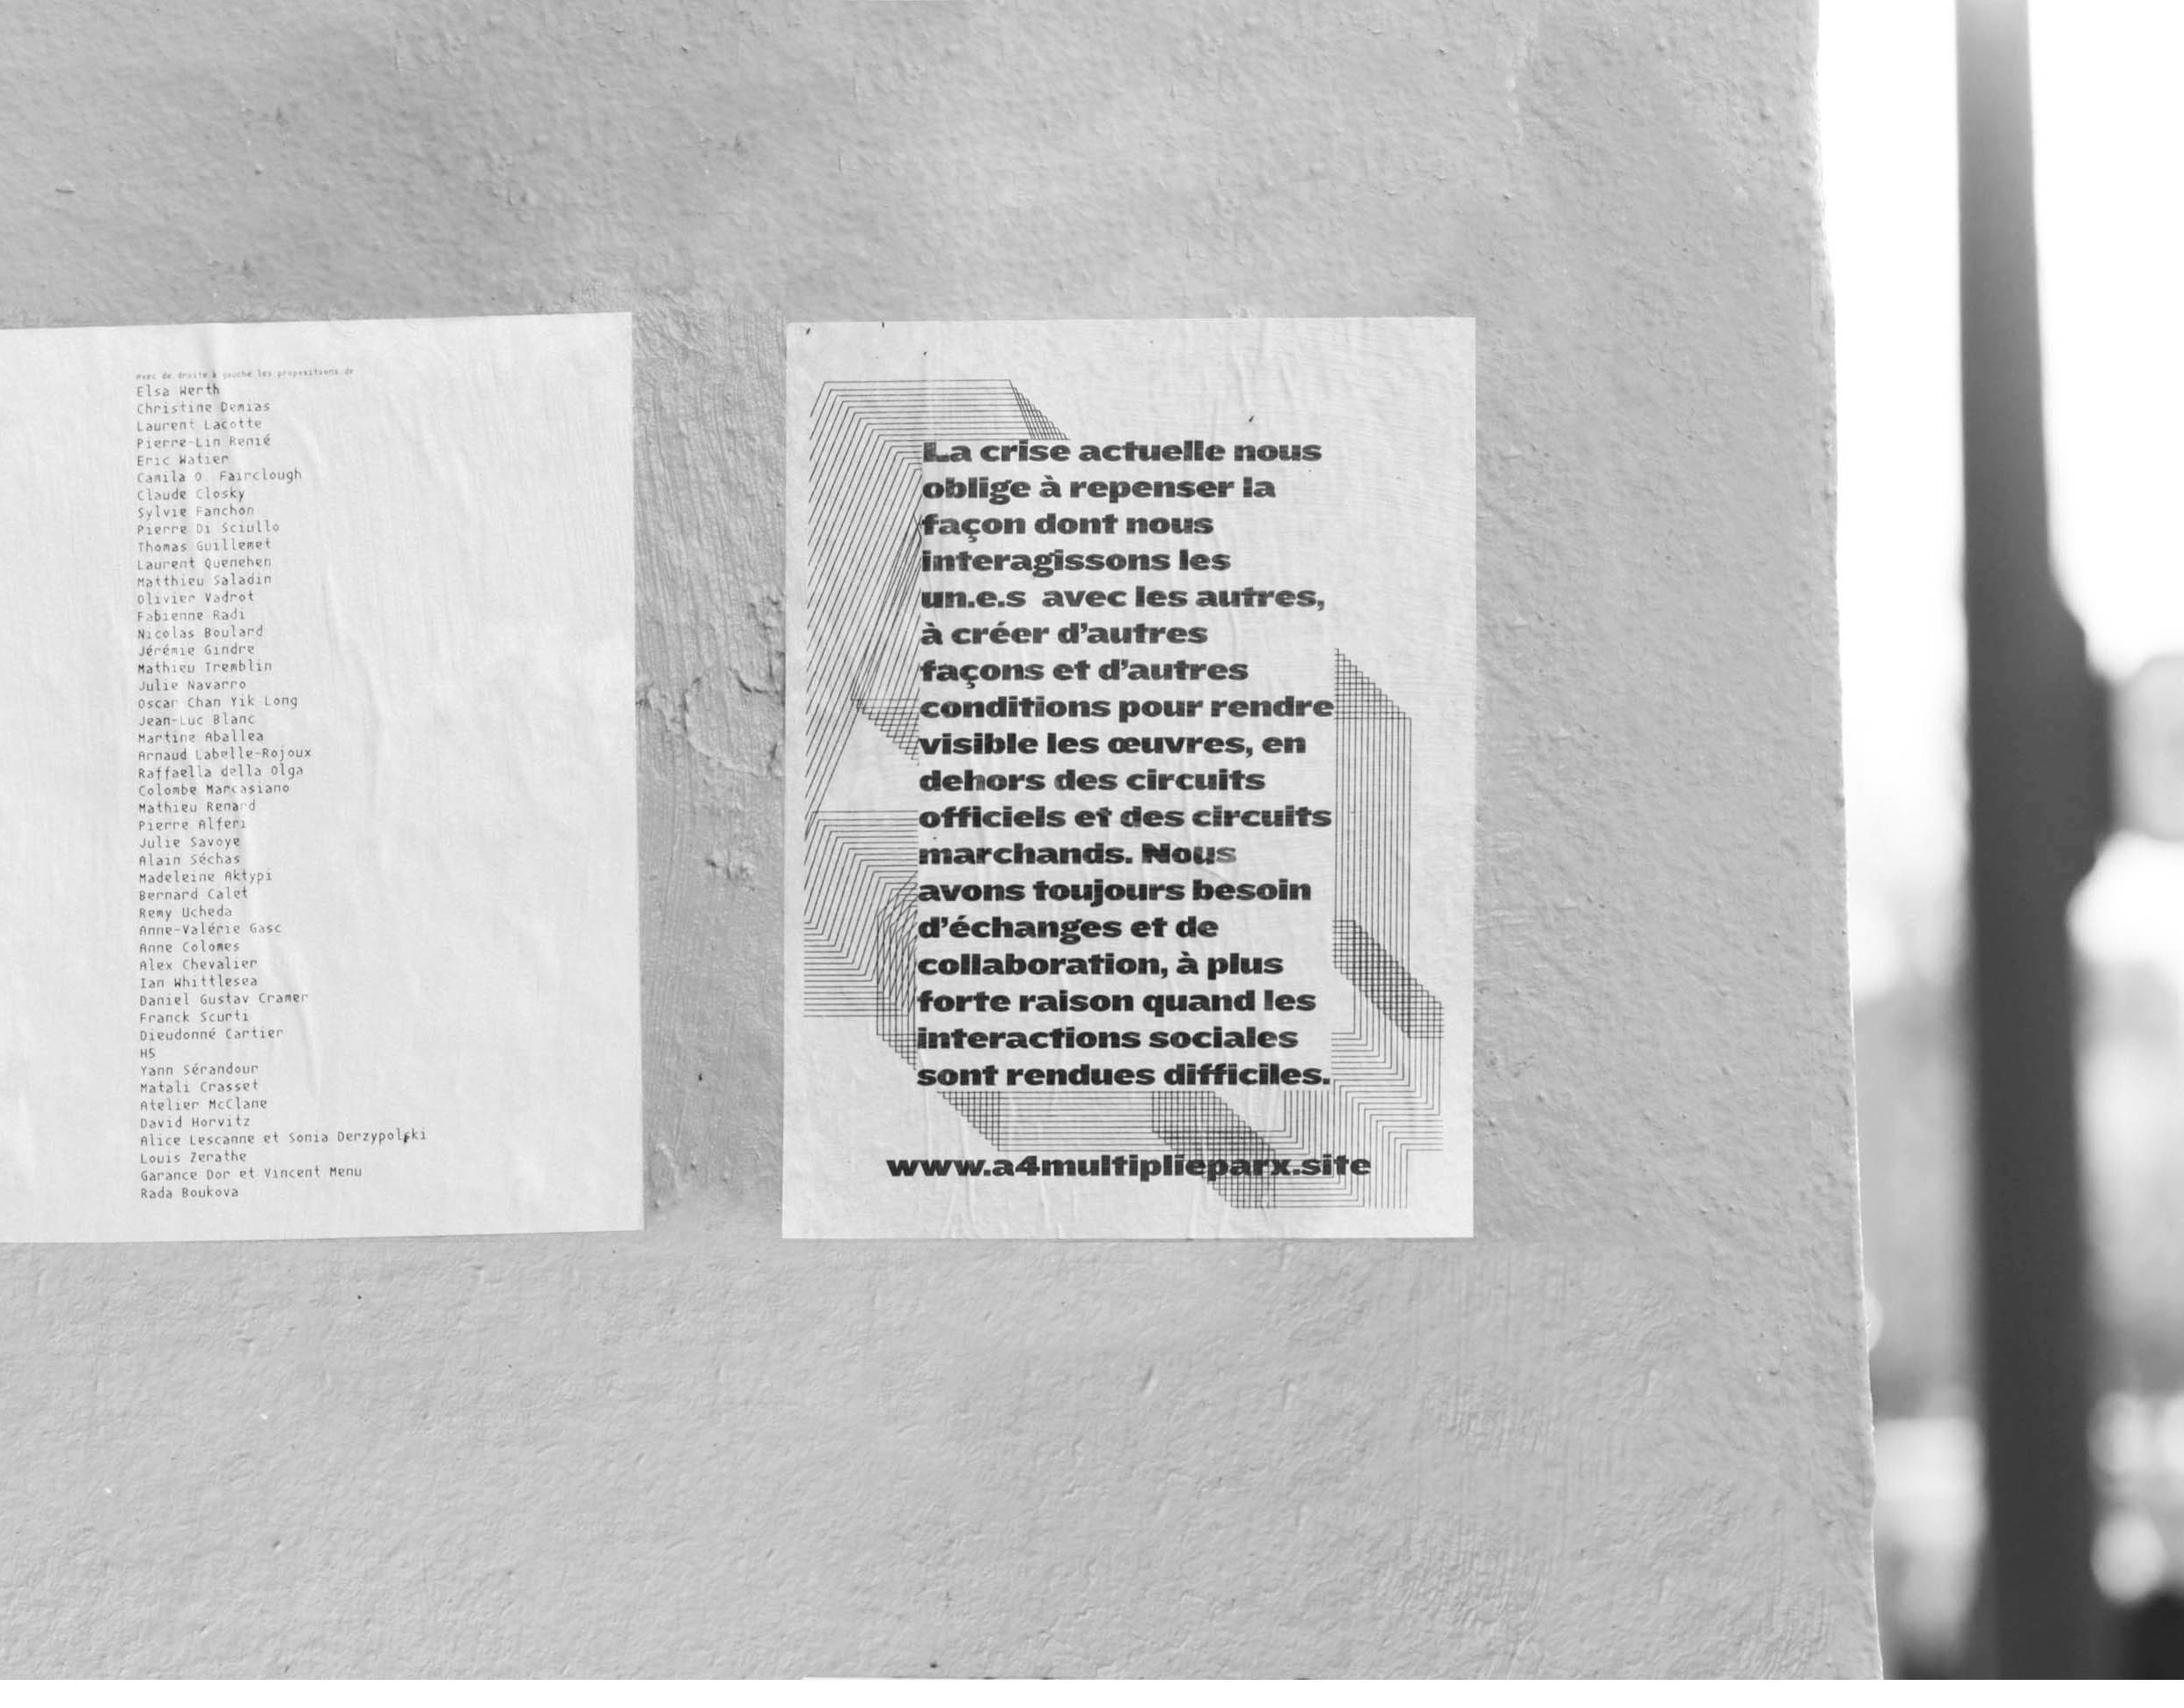 avec de droite à gauche les propositions de
Elsa Werth
Christine Demias
Laurent Lacotte
Pierre-Lin Renié
Eric Watier
Camila O. Fairclough
Claude Closky
Sylvie Fanchon
Pierre Di Sciullo
Thomas Guillemet
Laurent Quenehen
Matthieu Saladin
Olivier Vadrot
Fabienne Radi
Nicolas Boulard
Jérémie Gindre
Mathieu Tremblin
Julie Navarro
Oscar Chan Yik Long
Jean-Luc Blanc
Martine Aballea
Arnaud Labelle-Rojoux
Raffaella della Olga
Colombe Marcasiano
Mathieu Renard
Pierre Alferi
Julie Savoye
Alain Séchas
Madeleine Aktypi
Bernard Calet
Remy Ucheda
Anne-Valérie Gasc
Anne Colomes
Alex Chevalier
Ian Whittlesea
Daniel Gustav Cramer
Franck Scurti
Dieudonné Cartier
H5
Yann Sérandour
Matali Crasset
Atelier McClane
David Horvitz
Alice Lescanne et Sonia Derzypolski
Louis Zerathe
Garance Dor et Vincent Menu
Rada Boukova
La crise actuelle nous
oblige à repenser la
façon dont nous
interagissons les
un.e.s avec les autres,
à créer d'autres
façons et d'autres
conditions pour rendre
visible les œuvres, en
dehors des circuits
officiels et des circuits
marchands. Nous
avons toujours besoin
d'échanges et de
collaboration, à plus
forte raison quand les
interactions sociales
sont rendues difficiles.
www.a4multiplieparx.site